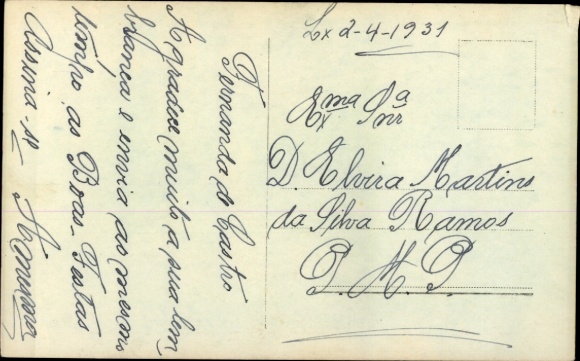 Fernanda de Castro
Agradece muito a sua lem
brança e envia ao mesmo
tempo as Boas-Festas
Assina-se
Lx 2-4-1931
Exma Snra
D. Elvira Martins
da Silva Ramos
P. M. P.